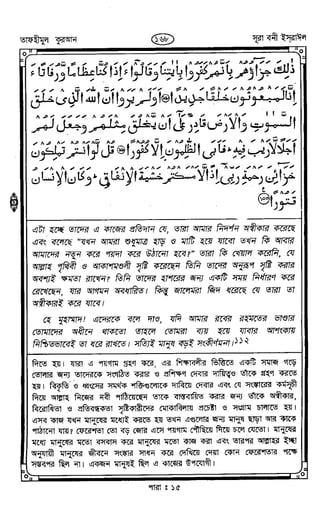 তাফহীমুল কুরআন
১৬৮
সূরা বনী ইসরাঈল
ذٰلِكَ جَزَآؤُهُمْ بِاَنَّهُمْ كَفَرُوْا بِاٰيٰتِنَا وَقَالُوْٓا ءَاِذَا كُنَّا عِظَامًا وَّرُفَاتًا ءَ
اِنَّا لَمَبْعُوْثُوْنَ خَلْقًا جَدِيْدًا ۝ اَوَلَمْ يَرَوْا اَنَّ اللّٰهَ الَّذِيْ خَلَقَ
السَّمٰوٰتِ وَالْاَرْضَ قَادِرٌ عَلٰٓى اَنْ يَّخْلُقَ مِثْلَهُمْ وَجَعَلَ لَهُمْ
اَجَلًا لَّا رَيْبَ فِيْهِ ؕ فَاَبَى الظّٰلِمُوْنَ اِلَّا كُفُوْرًا ۝ قُلْ لَّوْ اَنْتُمْ تَمْلِكُوْنَ
خَزَآئِنَ رَحْمَةِ رَبِّيْٓ اِذًا لَّاَمْسَكْتُمْ خَشْيَةَ الْاِنْفَاقِ ؕ وَكَانَ الْاِنْسَانُ
قَتُوْرًا ۝
এটা হচ্ছে তাদের এ কাজের প্রতিদান যে, তারা আমার নিদর্শন অস্বীকার করেছে
এবং বলেছে "যখন আমরা শুধুমাত্র হাড় ও মাটি হয়ে যাবো তখন কি আবার
আমাদের নতুন করে পয়দা করে উঠানো হবে?" তারা কি খেয়াল করেনি, যে
আল্লাহ পৃথিবী ও আকাশমণ্ডলী সৃষ্টি করেছেন তিনি তাদের অনুরূপ সৃষ্টি করার
অবশ্যই ক্ষমতা রাখেন? তিনি তাদের হাশরের জন্য একটি সময় নির্ধারণ করে
রেখেছেন, যার আগমন অবধারিত। কিন্তু জালেমরা জিদ ধরেছে যে তারা তা
অস্বীকারই করে যাবে।
হে মুহাম্মাদ! এদেরকে বলে দাও, যদি আমার রবের রহমতের ভাণ্ডার
তোমাদের অধীনে থাকতো তাহলে তোমরা ব্যয় হয়ে যাবার আশংকায়
নিশ্চিতভাবেই তা ধরে রাখতে। সত্যিই মানুষ বড়ই সংকীর্ণমনা।১১২
দিতে হয়। যারা এ পয়গাম গ্রহণ করে, এর শিক্ষাবলীর ভিত্তিতে একটি সমাজ গড়ে
তোলার জন্য তাদেরকে সংগঠিত করার ও প্রশিক্ষণ দেবার দায়িত্বও তাঁকে গ্রহণ করতে
হয়। বিকৃতি ও ধ্বংসের সমর্থক শক্তিগুলোকে দাবিয়ে দেবার এবং যে সংস্কারের কর্মসূচী
দিয়ে আল্লাহ নিজের নবী পাঠিয়েছেন তাকে বাস্তবায়িত করার জন্য তাঁকে অস্বীকার,
বিরোধিতা ও প্রতিবন্ধকতা সৃষ্টিকারীদের মোকাবিলায় প্রচেষ্টা ও সংগ্রাম চালাতে হয়।
এসব কাজ যখন মানুষের মধ্যেই করতে হয় তখন এগুলোর জন্য মানুষ ছাড়া আর কাকে
পাঠানো যায়? ফেরেশতা তো বড় জোর এসে পয়গাম পৌঁছিয়ে দিয়ে চলে যেতো। মানুষের
মধ্যে মানুষের মতো বসবাস করে মানুষের মতো কাজ করা এবং তারপর আল্লাহর ইচ্ছা
অনুযায়ী মানুষের জীবনে সংস্কার সাধন করে দেখিয়ে দেয়া কোন ফেরেশতার পক্ষে
সম্ভবপর ছিল না। একজন মানুষই ছিল এ কাজের উপযোগী।
পারা : ১৫